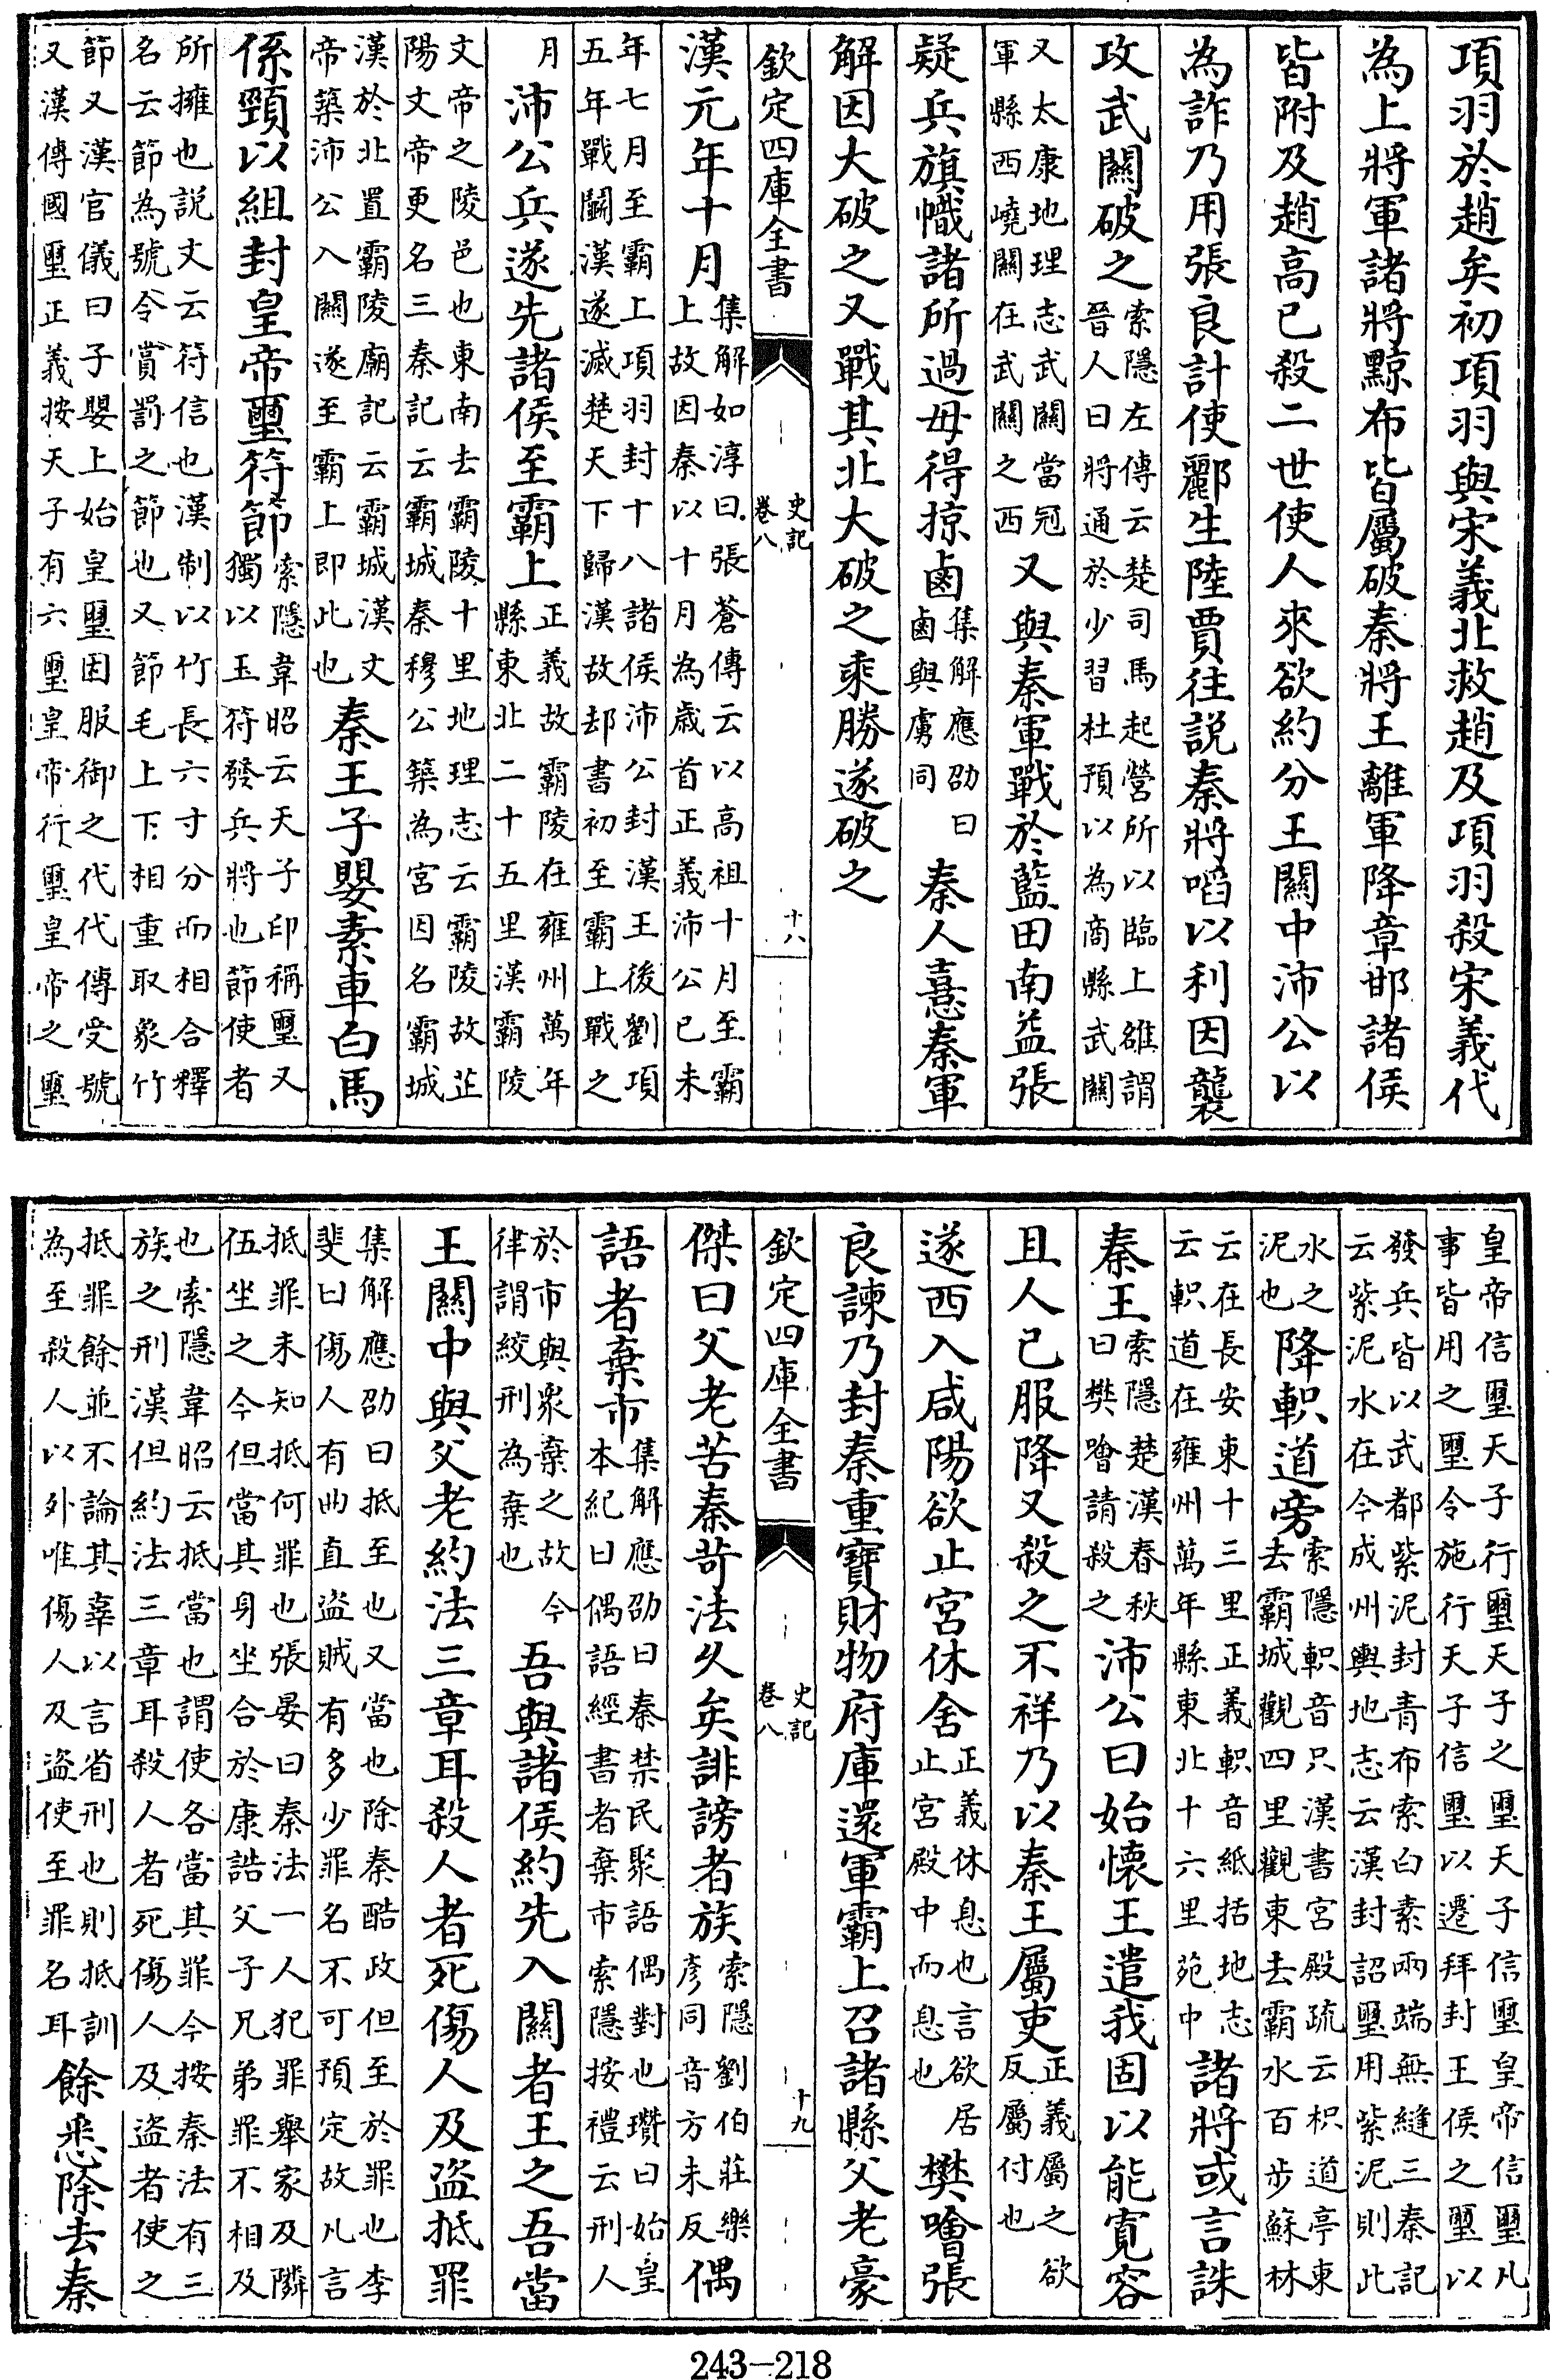 項羽於趙矣初項羽與宋義北救趙及項羽殺宋義代
為上將軍諸將黥布皆屬破秦將王離軍降章邯諸侯
皆附及趙高已殺二世使人來欲約分王關中沛公以
為詐乃用張良計使酈生陸賈往說秦將啗以利因襲
攻武關破之索隱左傳云楚司馬起營所以臨上雒謂
晉人曰將通於少習杜預以為商縣武關
又太康地理志武關當冠
軍縣西嶢關在武關之西又與秦軍戰於藍田南益張
疑兵旗幟諸所過毋得掠鹵集解應劭曰
鹵與虜同秦人憙秦軍
解因大破之又戰其北大破之乘勝遂破之
欽定四庫全書
史記
卷八
十八
漢元年十月集解如淳曰張蒼傳云以高祖十月至霸
上故因秦以十月為歲首正義沛公已未
年七月至霸上項羽封十八諸侯沛公封漢王後劉項
五年戰鬬漢遂滅楚天下歸漢故却書初至霸上戰之
月沛公兵遂先諸侯至霸上正義故霸陵在雍州萬年
縣東北二十五里漢霸陵
文帝之陵邑也東南去霸陵十里地理志云霸陵故芷
陽文帝更名三秦記云霸城秦穆公築為宮因名霸城
漢於北置霸陵廟記云霸城漢文
帝築沛公入關遂至霸上即此也秦王子嬰素車白馬
係頸以組封皇帝璽符節索隱韋昭云天子印稱璽又
獨以玉符發兵將也節使者
所擁也説文云符信也漢制以竹長六寸分而相合釋
名云節為號令賞罰之節也又節毛上下相重取象竹
節又漢官儀曰子嬰上始皇璽因服御之代代傳受號
又漢傳國璽正義按天子有六璽皇帝行璽皇帝之璽
皇帝信璽天子行璽天子之璽天子信璽皇帝信璽凡
事皆用之璽令施行天子信璽以遷拜封王侯之璽以
發兵皆以武都紫泥封青布索白素兩端無縫三秦記
云紫泥水在今成州輿地志云漢封詔璽用紫泥則此
水之
泥也降軹道旁索隱軹音只漢書宮殿疏云枳道亭東
去霸城觀四里觀東去霸水百步蘇林
云在長安東十三里正義軹音紙括地志
云軹道在雍州萬年縣東北十六里苑中諸將或言誅
秦王索隱楚漢春秋
曰樊噲請殺之沛公曰始懷王遣我固以能寬容
且人已服降又殺之不祥乃以秦王屬吏正義屬之欲
反屬付也
遂西入咸陽欲止宮休舍正義休息也言欲居
止宮殿中而息也樊噲張
良諫乃封秦重寶財物府庫還軍霸上召諸縣父老豪
欽定四庫全書
史記
卷八
十九
傑曰父老苦秦苛法久矣誹謗者族索隱劉伯莊樂
彥同音方未反偶
語者棄市集解應劭曰秦禁民聚語偶對也瓚曰始皇
本紀曰偶語經書者棄市索隱按禮云刑人
於市與衆棄之故今
律謂絞刑為棄也吾與諸侯約先入關者王之吾當
王關中與父老約法三章耳殺人者死傷人及盜抵罪
集解應劭曰抵至也又當也除秦酷政但至於罪也李
斐曰傷人有曲直盜賊有多少罪名不可預定故凡言
抵罪未知抵何罪也張晏曰秦法一人犯罪舉家及隣
伍坐之今但當其身坐合於康誥父子兄弟罪不相及
也索隱韋昭云抵當也謂使各當其罪今按秦法有三
族之刑漢但約法三章耳殺人者死傷人及盜者使之
抵罪餘並不論其辜以言省刑也則抵訓
為至殺人以外唯傷人及盜使至罪名耳餘悉除去秦
243-218